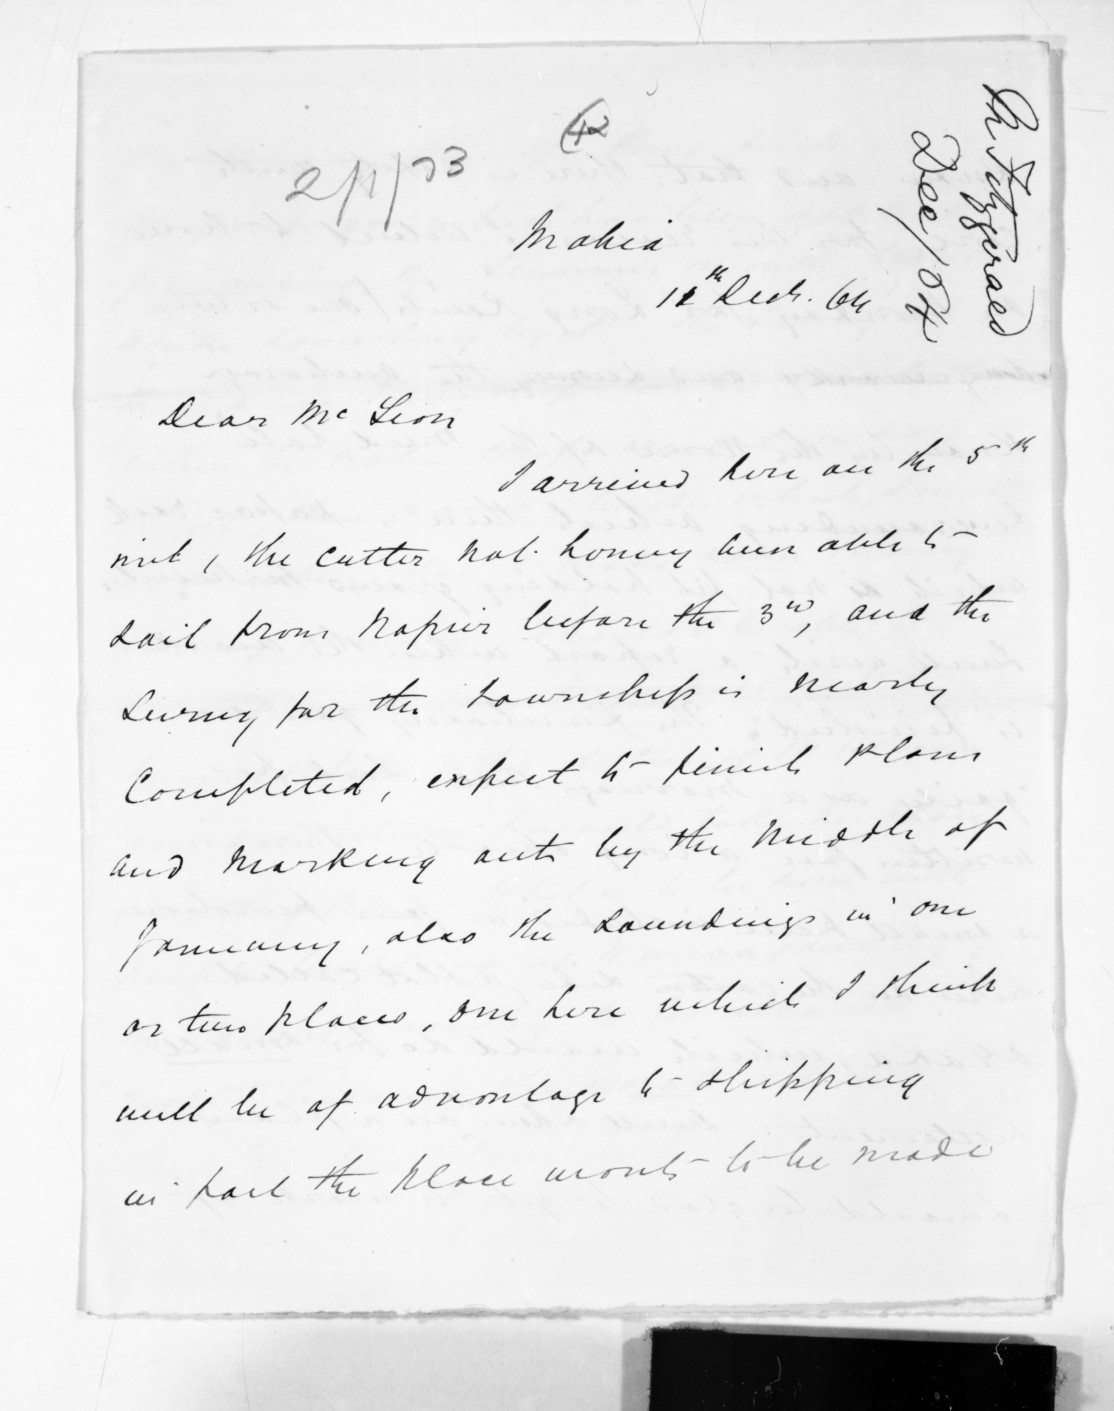 42
2/1/73
Mr Fitzgerald
Dec/64
Mahia
12th Decr. 64
Dear Mc Lean
I arrived here on the 5th
inst, the cutter not having been able to
sail from Napier before the 3rd, and the
Survey for the township is nearly
Completed, expect to finish plans
and marking out by the middle of
January, also the soundings in one
or two places, one here which I think
will be of advantage to shipping
in fact the place wants to be made